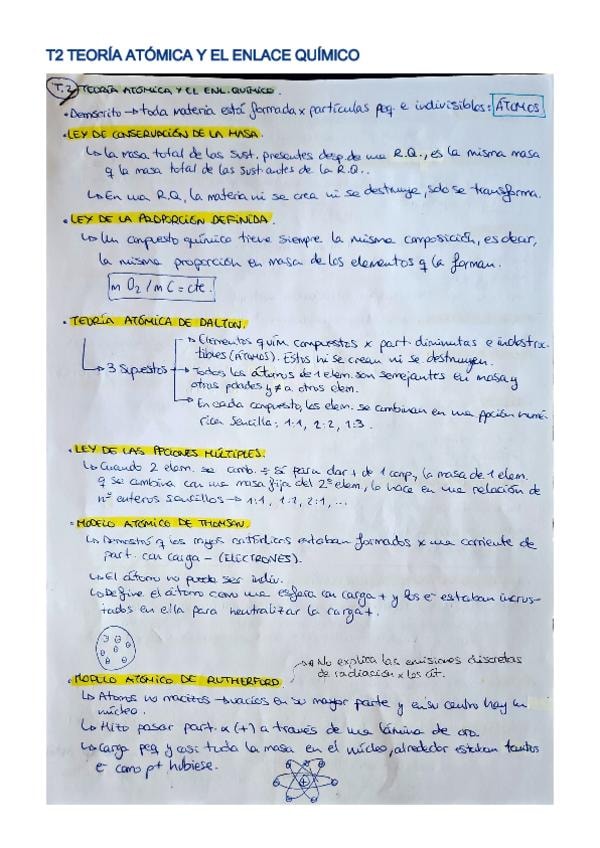 T2 TEORÍA ATÓMICA Y EL ENLACE QUÍMICO
T.2 TEORÍA ATÓMICA Y EL ENL. QUÍMICO.
• Demócrito → toda materia está formada x partículas peq. e indivisibles: ÁTOMOS
• LEY DE CONSERVACIÓN DE LA MASA.
↳ la masa total de las sust. presentes desp. de una R.Q., es la misma masa
q la masa total de las sust antes de la R.Q..
↳ En una R.Q, la materia ni se crea ni se destruye, solo se transforma.
• LEY DE LA PROPORCIÓN DEFINIDA.
↳ Un compuesto químico tiene siempre la misma composición, es decir,
la misma proporción en masa de los elementos q la forman.
m O2 / m C = cte.
• TEORÍA ATÓMICA DE DALTON.
→ Elementos quím compuestos x part. diminutas e indestruc-
tibles (ÁTOMOS). Estos ni se crean ni se destruyen.
3 supuestos → Todos los átomos de 1 elem. son semejantes en masa y
otras pdades y ≠ a otros elem.
→ En cada compuesto, los elem. se combinan en una ppción numé-
rica sencilla: 1:1, 2:2, 1:3.
• LEY DE LAS PPCIONES MÚLTIPLES.
↳ Cuando 2 elem. se comb. ÷ sí para dar + de 1 comp, la masa de 1 elem.
q se combina con una masa fija del 2º elem, lo hace en una relación de
nº enteros sencillos → 1:1, 1:2, 2:1, ...
• MODELO ATÓMICO DE THOMSON.
↳ Demostró q los rayos catódicos estaban formados x una corriente de
part. con carga - (ELECTRONES).
↳ El átomo no puede ser indiv.
↳ Define el átomo como una esfera con carga + y los e⁻ estaban incrus-
tados en ella para neutralizar la carga +.
→ No explica las emisiones discretas
de radiación x los át.
• MODELO ATÓMICO DE RUTHERFORD.
↳ Átomos no macizos → vacíos en su mayor parte y en su centro hay un
núcleo.
↳ Hizo pasar part. α (+) a través de una lámina de oro.
↳ Carga peq y casi toda la masa en el núcleo, alrededor estaban tantos
e⁻ como p⁺ hubiese.
+